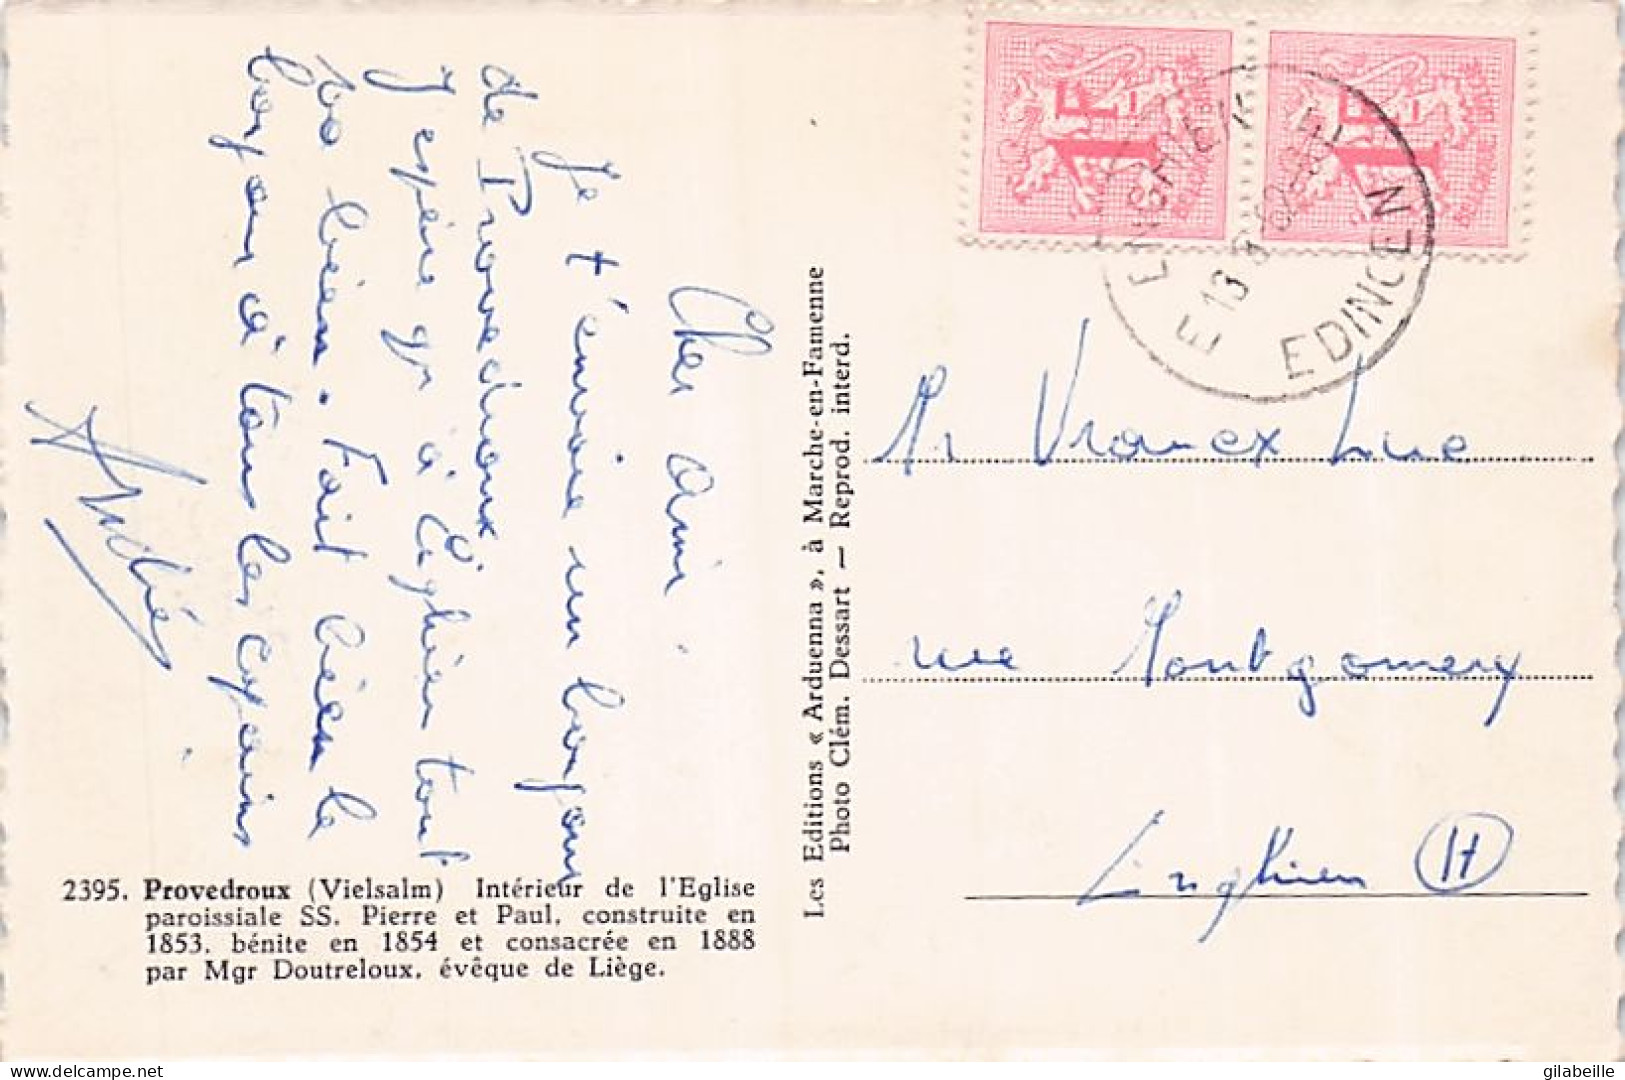 Cher ami.
Je t'envoie un bonjour
de Provedroux
J'espère qu' à Enghien tout
va bien. Fait bien le
bonjour à tous les copains
2395. Provedroux (Vielsalm) Intérieur de l'Eglise
paroissiale SS. Pierre et Paul, construite en
1853, bénite en 1854 et consacrée en 1888
par Mgr Doutreloux, évêque de Liège.
Les Editions « Arduenna », à Marche-en-Famenne
Photo Clém. Dessart — Reprod. interd.
1F
BELGIQUE BELGIË
1F
BELGIQUE BELGIË
ENGHIEN
EDINGEN
E 13
Mr Vranex Luc
rue Montgomery
Enghien (H)
delcampe.net
gilabeille